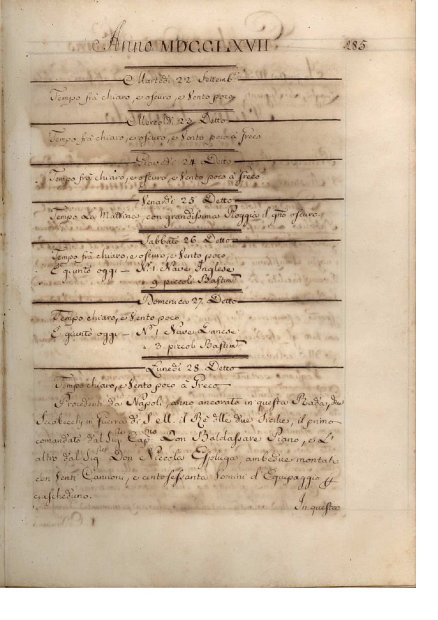 Anno MDCCLXVII 285
Martedì 22 Settemb.
Tempo frà chiaro, e oscuro, e Vento poco
Mercoldì 23 Detto
Tempo frà chiaro, e oscuro, e Vento poco à Greco
Giovedì 24 Detto
Tempo frà chiaro, e oscuro, e Vento poco à Greco
Venardì 25 Detto
Tempo La Mattina con grandissima Pioggia il oscuro
Sabbato 26 Detto
Tempo frà chiaro, e oscuro, e Vento poco
È giunto oggi — N.º 1 Nave Inglese
9 piccoli Bastim.
Domenica 27 Detto
Tempo chiaro, e Vento poco
È giunto oggi — N.º 1 Nave
3 piccoli Bastim.
Lunedì 28 Detto
Tempo chiaro, e Vento poco à Greco
Procedenti da Napoli anno ancorato in questa Rada, due
Sciabecchi in Guerra di S. M. il Rè delle due Sicilie, il primo
comandato dal Sig. Cap. Don Baldassare e L'
altro dal Sig. Don Niccolao Espluga, ambedue montati
con Venti Cannoni, e centosessanta Uomini d'Equipaggio p
ciascheduno.
In questo